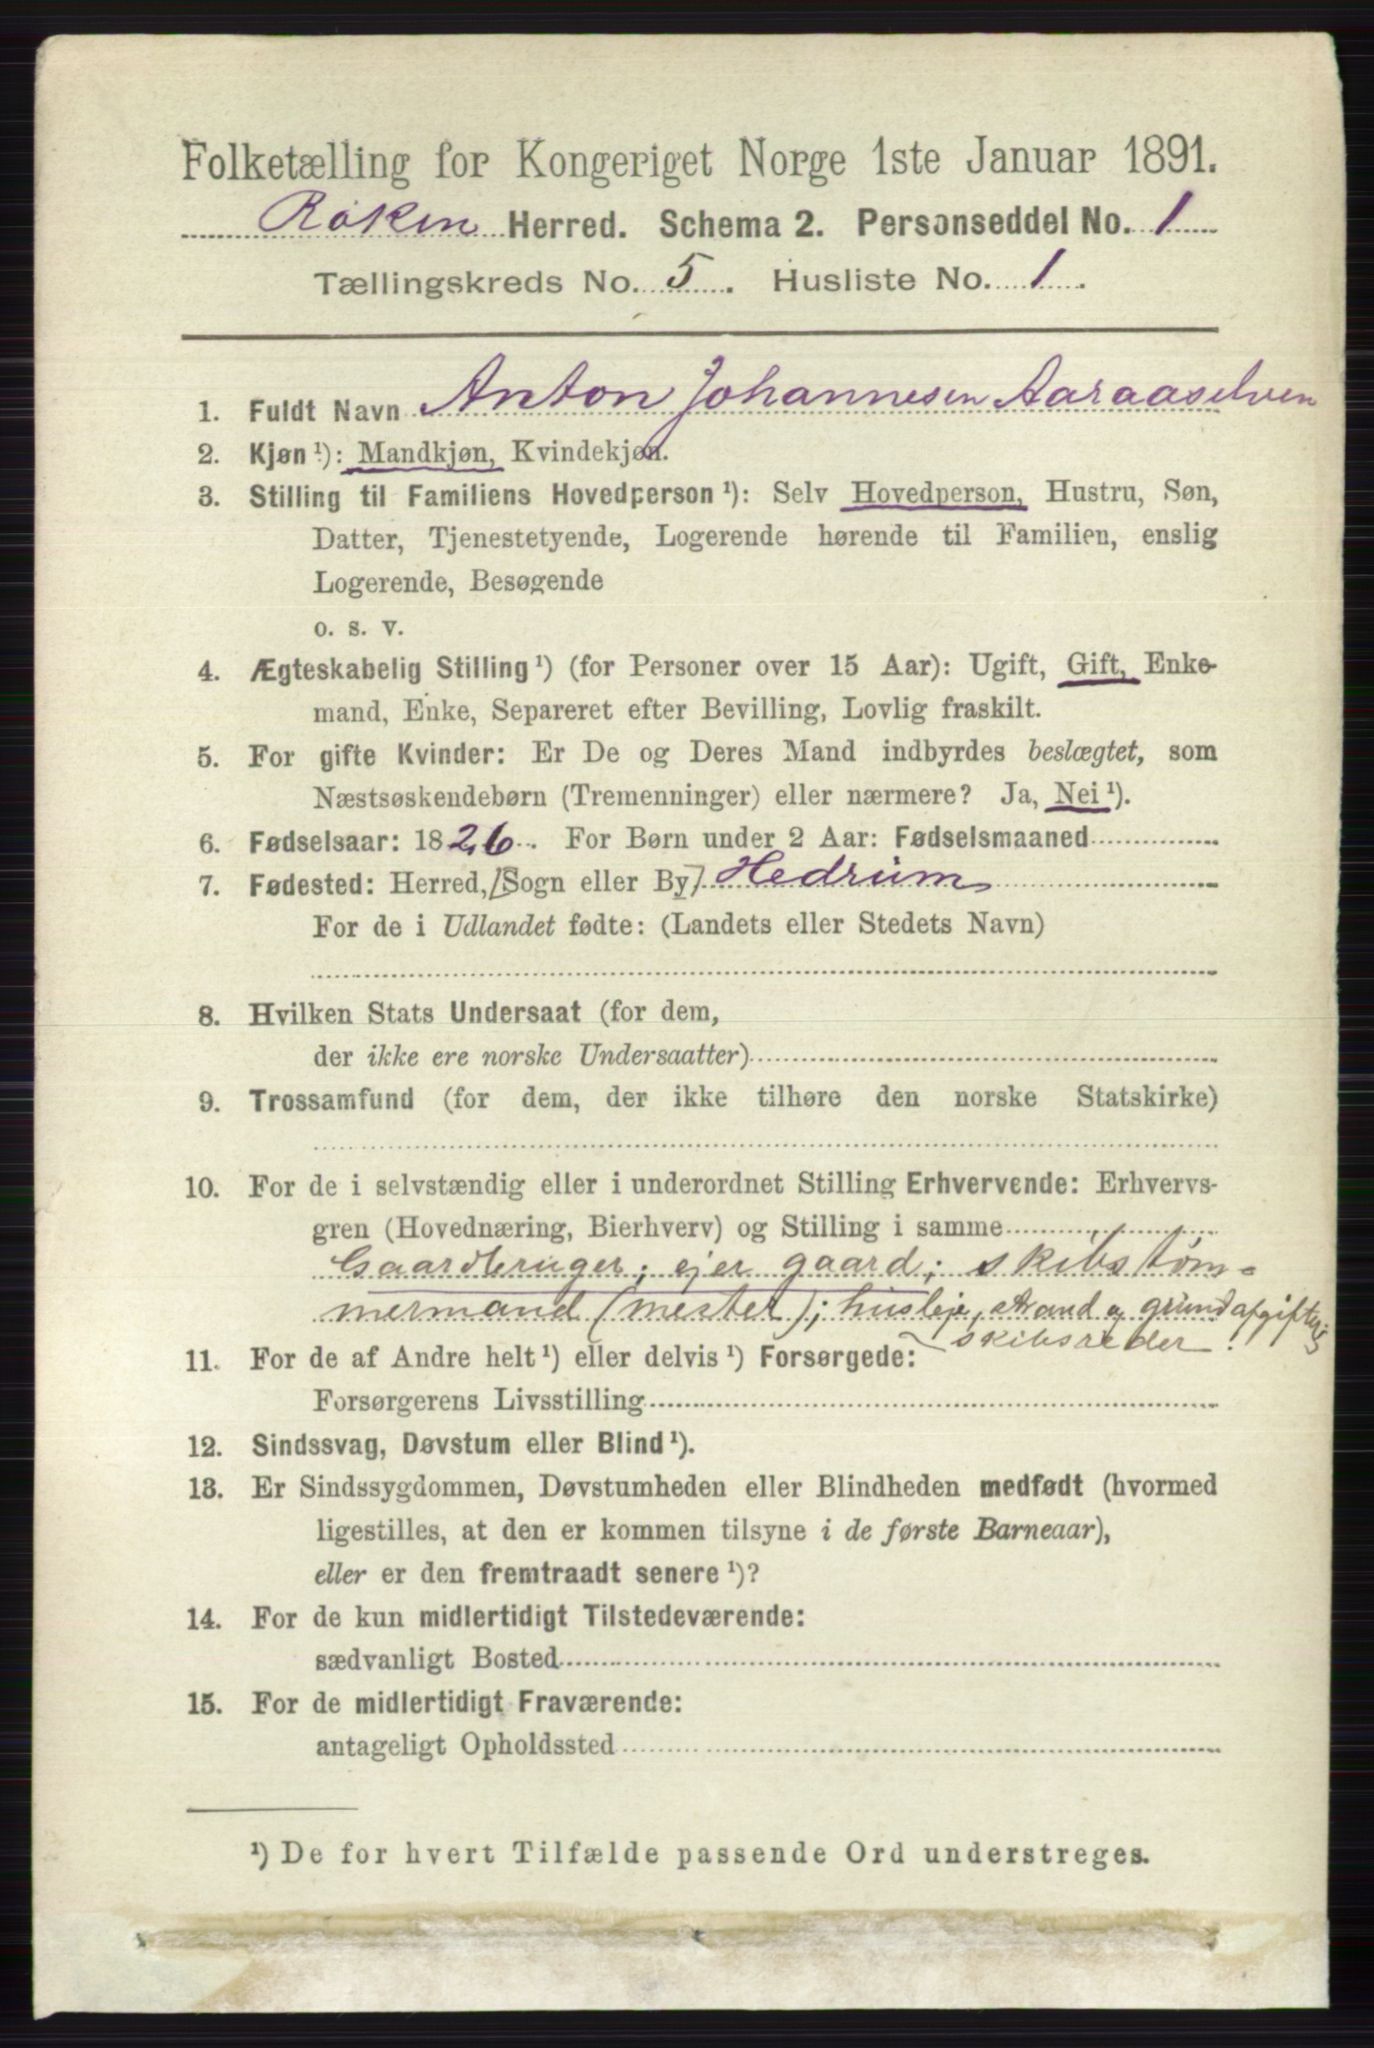 Folketælling for Kongeriget Norge 1ste Januar 1891.
Røken Herred. Schema 2. Personseddel No. 1
Tællingskreds No. 5. Husliste No. 1.
1. Fuldt Navn Anton Johannesen Aaraaselven
2. Kjøn¹): Mandkjøn, Kvindekjøn.
3. Stilling til Familiens Hovedperson¹): Selv Hovedperson, Hustru, Søn,
Datter, Tjenestetyende, Logerende hørende til Familien, enslig
Logerende, Besøgende
o. s. v.
4. Ægteskabelig Stilling¹) (for Personer over 15 Aar): Ugift, Gift, Enke-
mand, Enke, Separeret efter Bevilling, Lovlig fraskilt.
5. For gifte Kvinder: Er De og Deres Mand indbyrdes beslægtet, som
Næstsøskendebørn (Tremenninger) eller nærmere? Ja, Nei¹).
6. Fødselsaar: 1826. For Børn under 2 Aar: Fødselsmaaned
7. Fødested: Herred, [Sogn eller By] Hedrum
For de i Udlandet fødte: (Landets eller Stedets Navn)
8. Hvilken Stats Undersaat (for dem,
der ikke ere norske Undersaatter)
9. Trossamfund (for dem, der ikke tilhøre den norske Statskirke)
10. For de i selvstændig eller i underordnet Stilling Erhvervende: Erhvervs-
gren (Hovednæring, Bierhverv) og Stilling i samme
Gaardbruger, ejer gaard; skibstøm-
mermand (mester); husleje, strand og grundafgifter;
skibsreder.
11. For de af Andre helt¹) eller delvis¹) Forsørgede:
Forsørgerens Livsstilling
12. Sindssvag, Døvstum eller Blind¹).
13. Er Sindssygdommen, Døvstumheden eller Blindheden medfødt (hvormed
ligestilles, at den er kommen tilsyne i de første Barneaar),
eller er den fremtraadt senere¹)?
14. For de kun midlertidigt Tilstedeværende:
sædvanligt Bosted
15. For de midlertidigt Fraværende:
antageligt Opholdssted
¹) De for hvert Tilfælde passende Ord understreges.